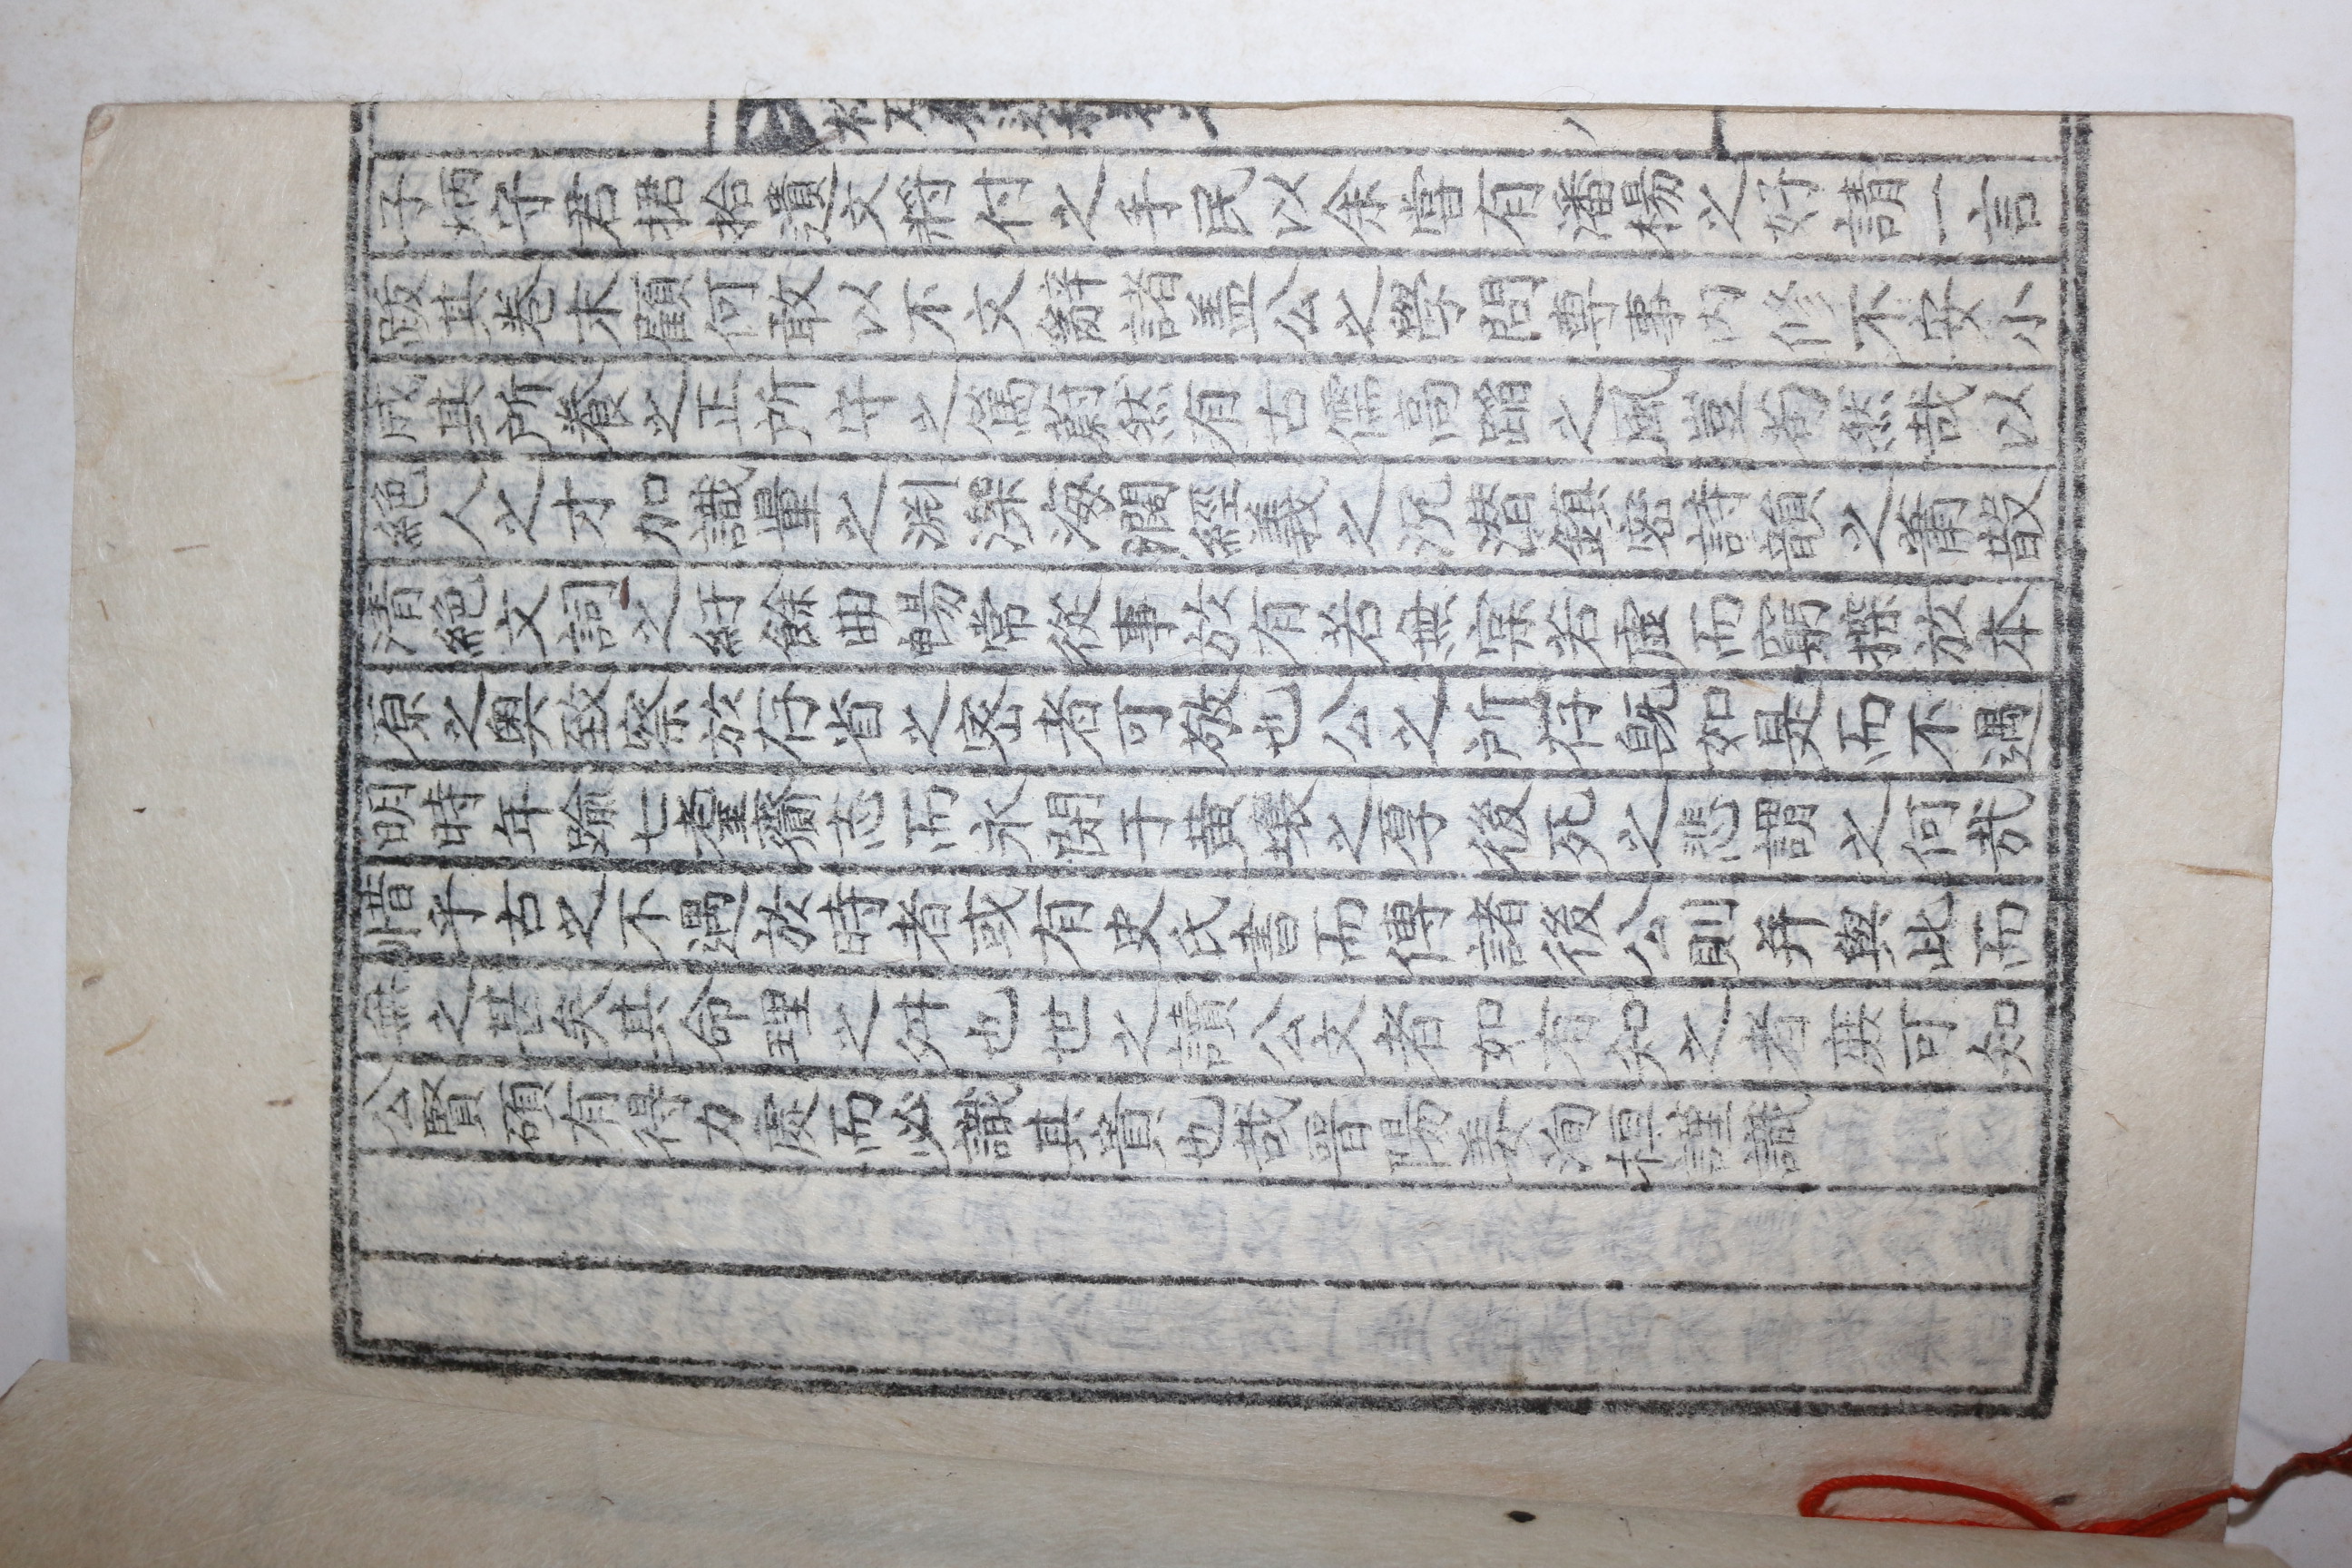 子炳守君据拾遺文將付之手民以余嘗有潘楊之好請一言
跋其卷末顧何敢以不文辭諸盖公之學問專事內修不安小
成其所養之正所守之篤藹然有古儒高蹈之風豈徒然哉以
絕人之才加識量之淵深海濶經義之沉潛縝密詩韻之
清絕文詞之紆餘毋曷常從事於有若無實若虛而窮探於本
原之奧致察於存省之密者可敬也公之所存既如是而不遇
明時年踰七耋齎志而永閉于黃壤之厚後死之悲謂之何哉
惜乎古之不遇於時者或有史氏書而傳諸後公則并與此而
無之甚矣其命理之舛也世之讀公文者如有知之者庶可知
公賢領有得力處而必識其實也哉晉陽姜洵桓謹識